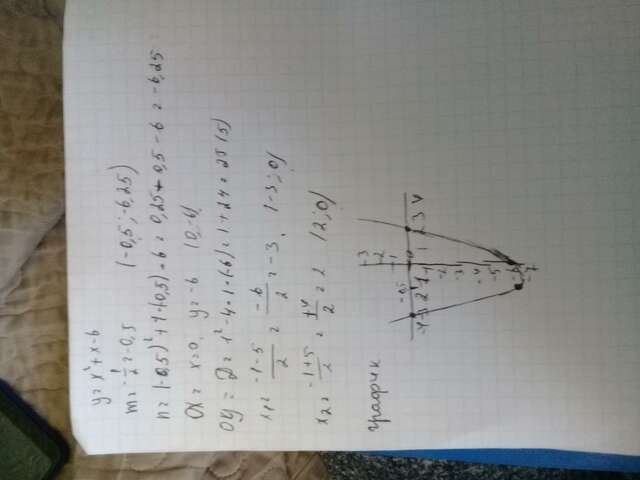 y = x² + x - 6
m = -1/2 = -0,5 (-0,5; -6,25)
n = (-0,5)² + 1·(-0,5) - 6 = 0,25 - 0,5 - 6 = -6,25
OX = x = 0, y = -6 (0; -6)
OY = D = 1² - 4·1·(-6) = 1 + 24 = 25 (5)
x₁ = -1-5/2 = -6/2 = -3. (-3; 0)
x₂ = -1+5/2 = +4/2 = 2 (2; 0)
график